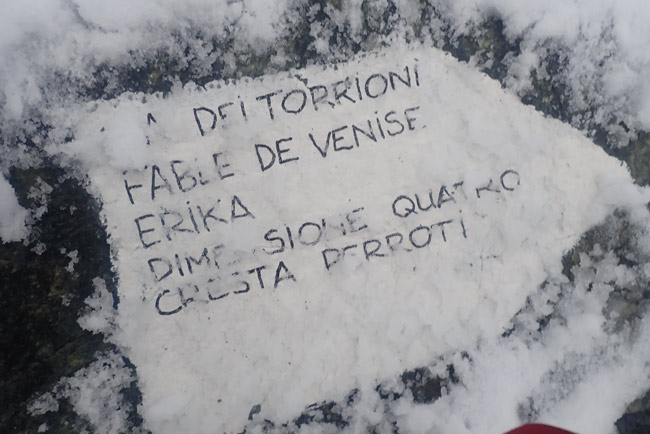 DEI TORRIONI
FABLE DE VENISE
ERIKA
DIMENSIONE QUATRO
CRESTA PERROTI